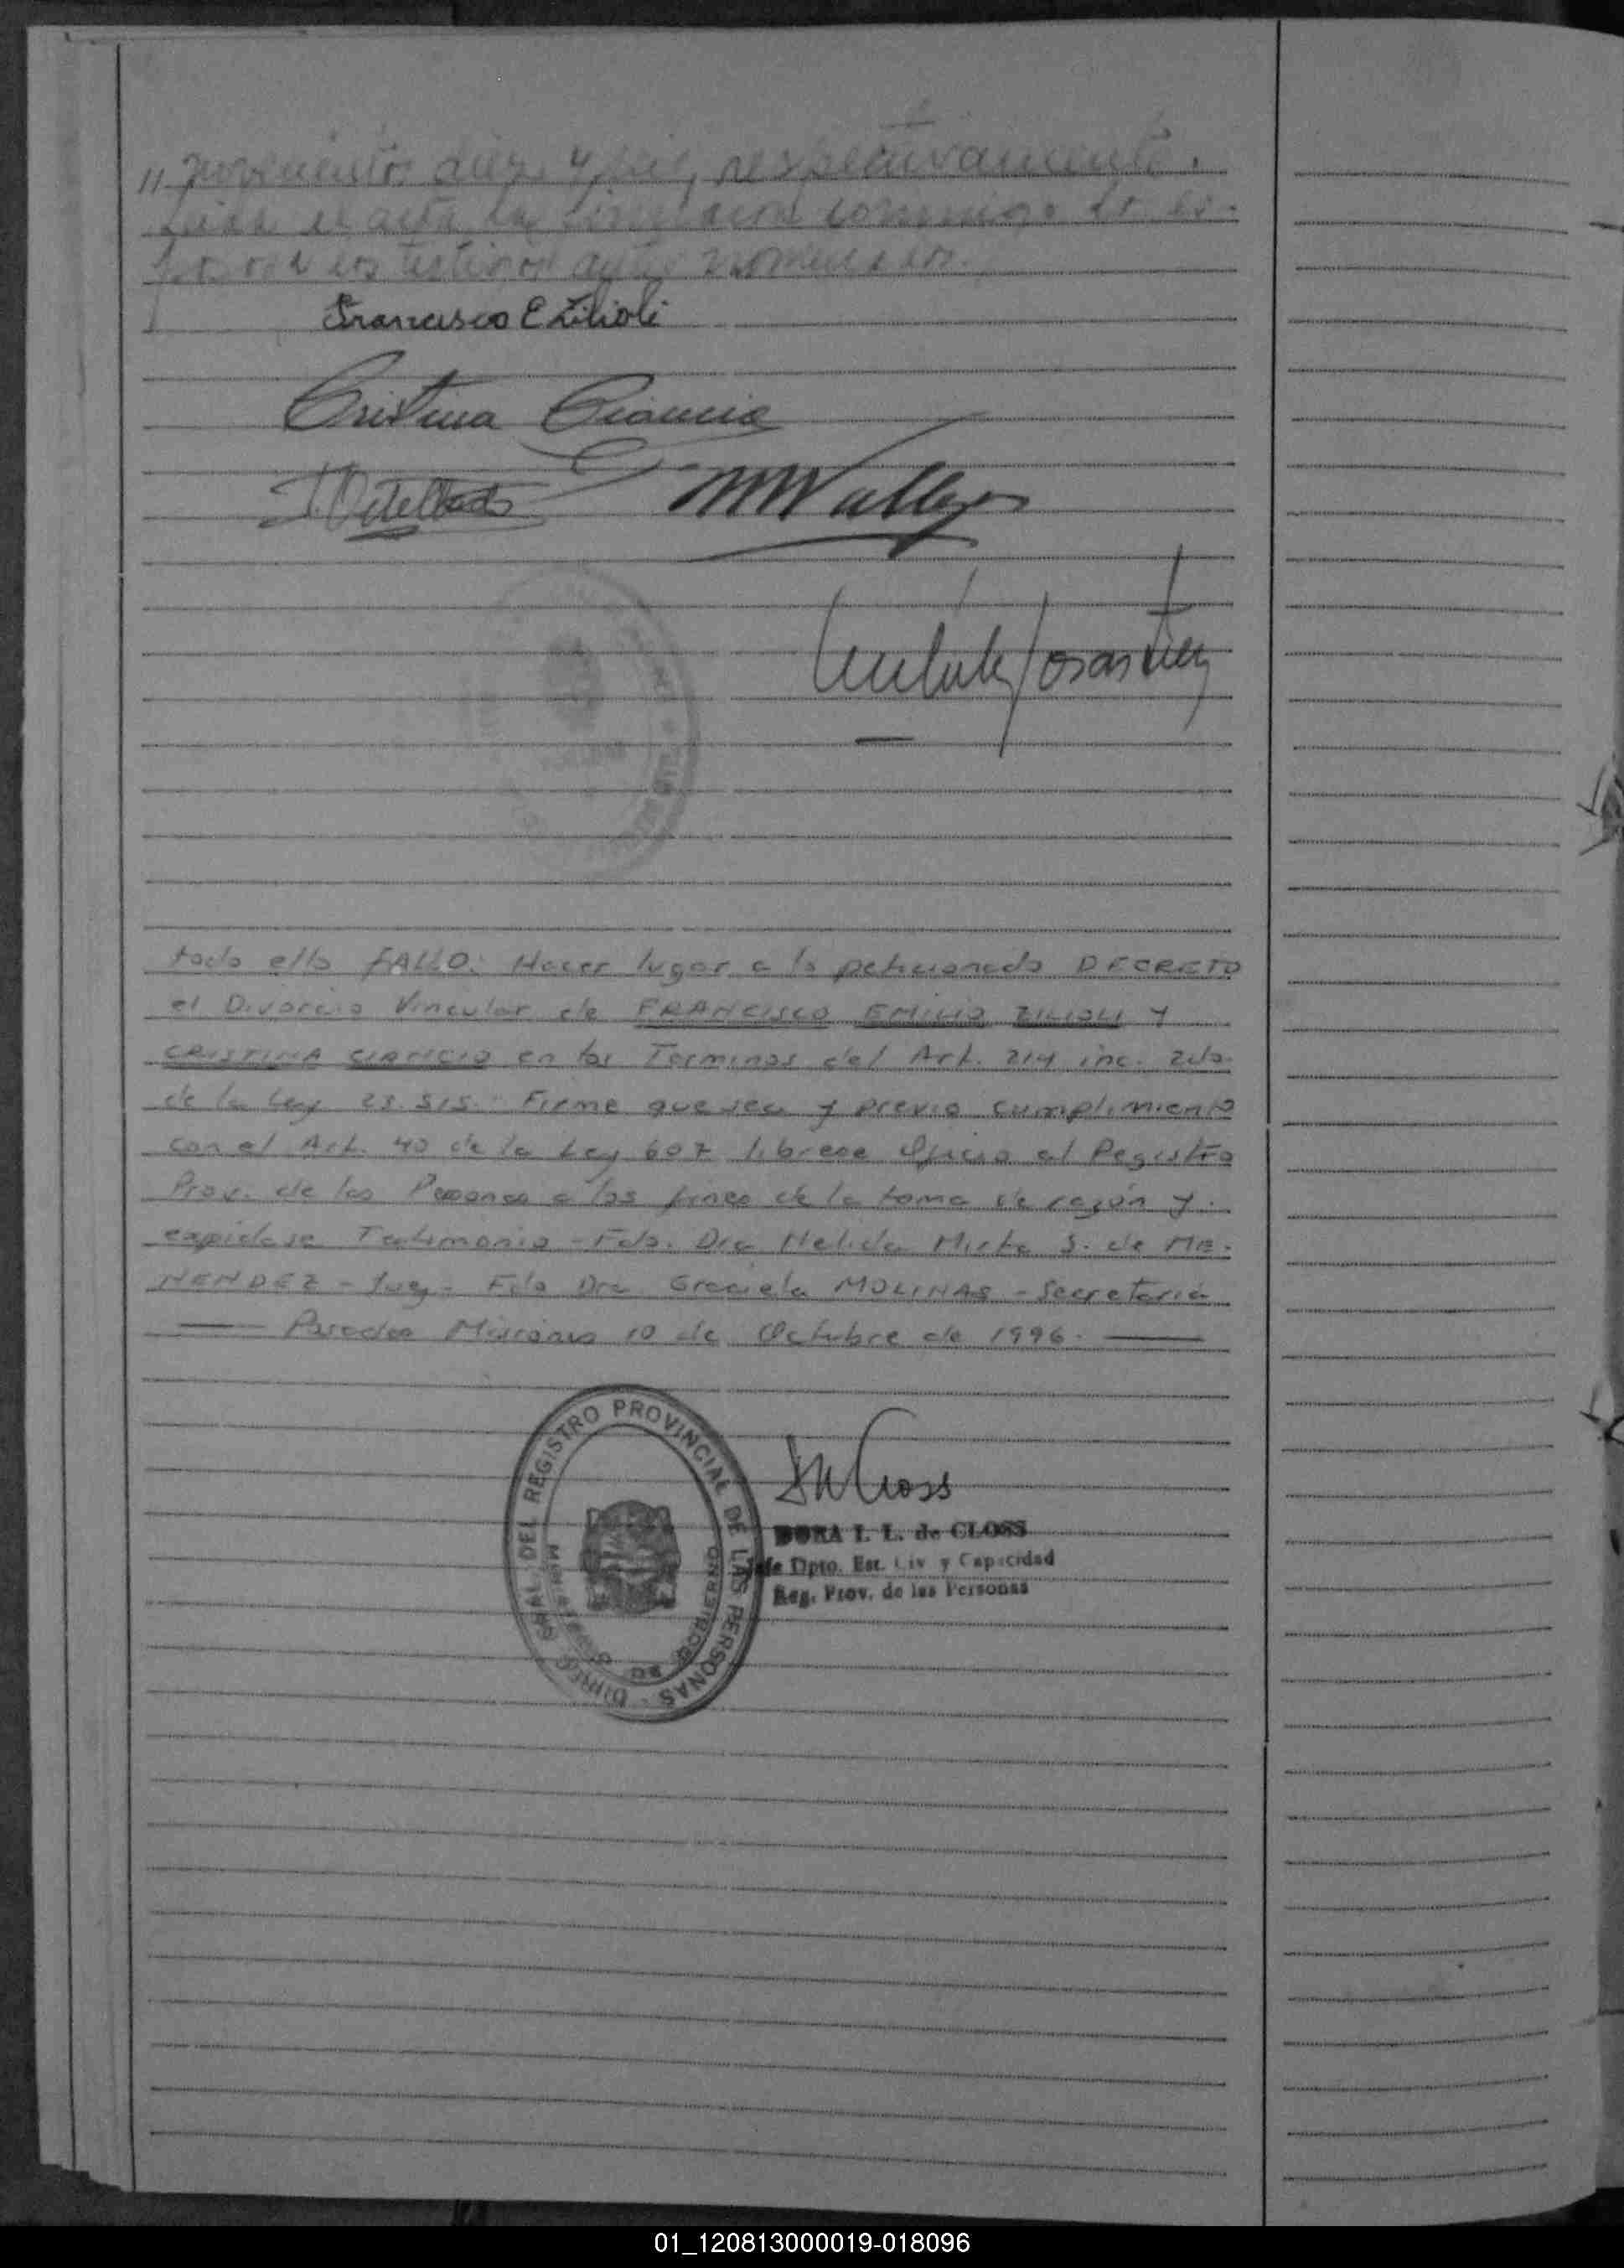 respectivamente.
Leida el acta la
los testigos
Francisco E Zilioli
Cristina Ciancio
todo ello FALLO: Hacer lugar a lo peticionado DECRETO
el Divorcio Vincular de FRANCISCO EMILIO ZILIOLI Y
CRISTINA CIANCIO en los Terminos del Art. 214 inc. 2do.
de la Ley 23.515. Firme que sea y previo cumplimiento
con el Art. 40 de la Ley 607 librese Oficio al Registro
Prov. de las Personas a los fines de la toma de razón y.
expidase Testimonio - Fdo. Dra Nelida Mirta S. de ME-
NENDEZ - Juez - Fdo Dra Graciela MOLINAS - Secretaria
Posadas Misiones 10 de Octubre de 1996.
DIREC. GRAL. DEL REGISTRO PROVINCIAL DE LAS PERSONAS
DORA I. L. de CLOSS
Jefe Dpto. Est. Civ y Capacidad
Reg. Prov. de las Personas
01_120813000019-018096